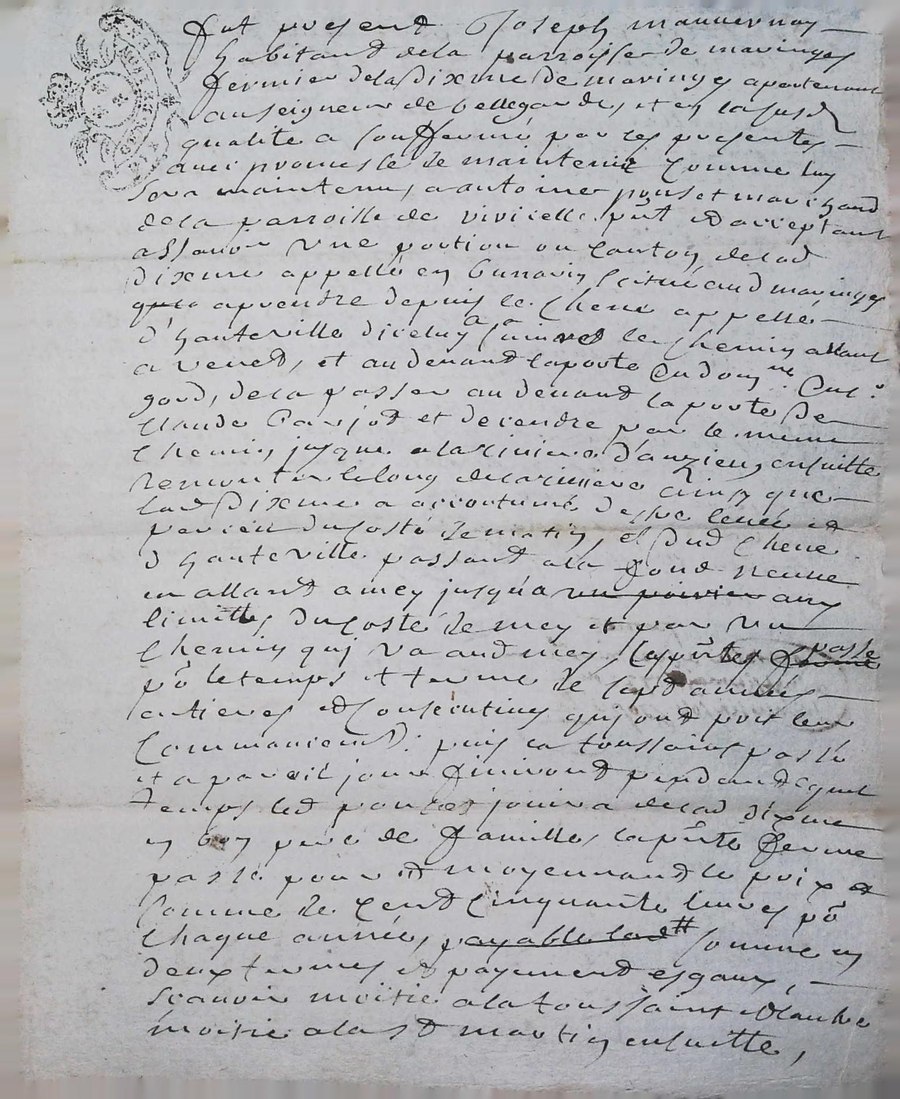 fut present Joseph mauvernay
habitant dela parroisse de maringes
fermier dela dixme de maringes apartenant
au seigneur de bellegarde, et en la susd
qualite a souffermé par les presentes
avec promesse de maintenir comme luy
sera maintenu, a antoine marchand
dela parroisse de viricelle pnt et acceptant
assavoir une portion ou canton delad
dixme appellé en scitué aud maringes
aprendre depuis le Chene appellé
d'hauteville dicelluy suivre le chemin allant
a , et audevand laporte
gord, dela passer au devand laporte de
Claude et decendre par le meme
Chemin jusque alariviere d'anzieu, ensuitte
remonter lelong delariviere ainsy que
lad dixme a accoutumé destre levée et
percue du costé de matin, et dud Chene
d'hauteville passand ala fond neuve
en allant a mey jusqua un poirier aux
limittes du costé de mey et par un
Chemin quj va aud mey, lapnte ferme passé
po le temps et terme de sept années
entieres et Consecutives quj ond prit leur
Commancement puis la toussaint passé
et a pareil jour finirond pendand lequel
temps led pons jouira delad dixme
en bon pere de famille, lapnte ferme
passé pour et moyennand le prix et
somme de Cend Cinquante livres po
Chaque année, payable lad somme en
deux termes et payemend esgaux,
scavoir moitié alatoussaint et lautre
moitié alast martin ensuitte,